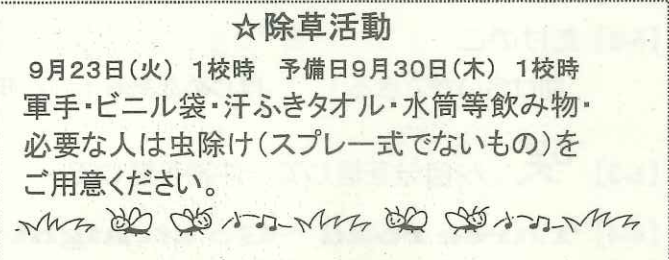 ☆除草活動
9月23日(火) 1校時 予備日9月30日(木) 1校時
軍手・ビニル袋・汗ふきタオル・水筒等飲み物・
必要な人は虫除け(スプレー式でないもの)を
ご用意ください。